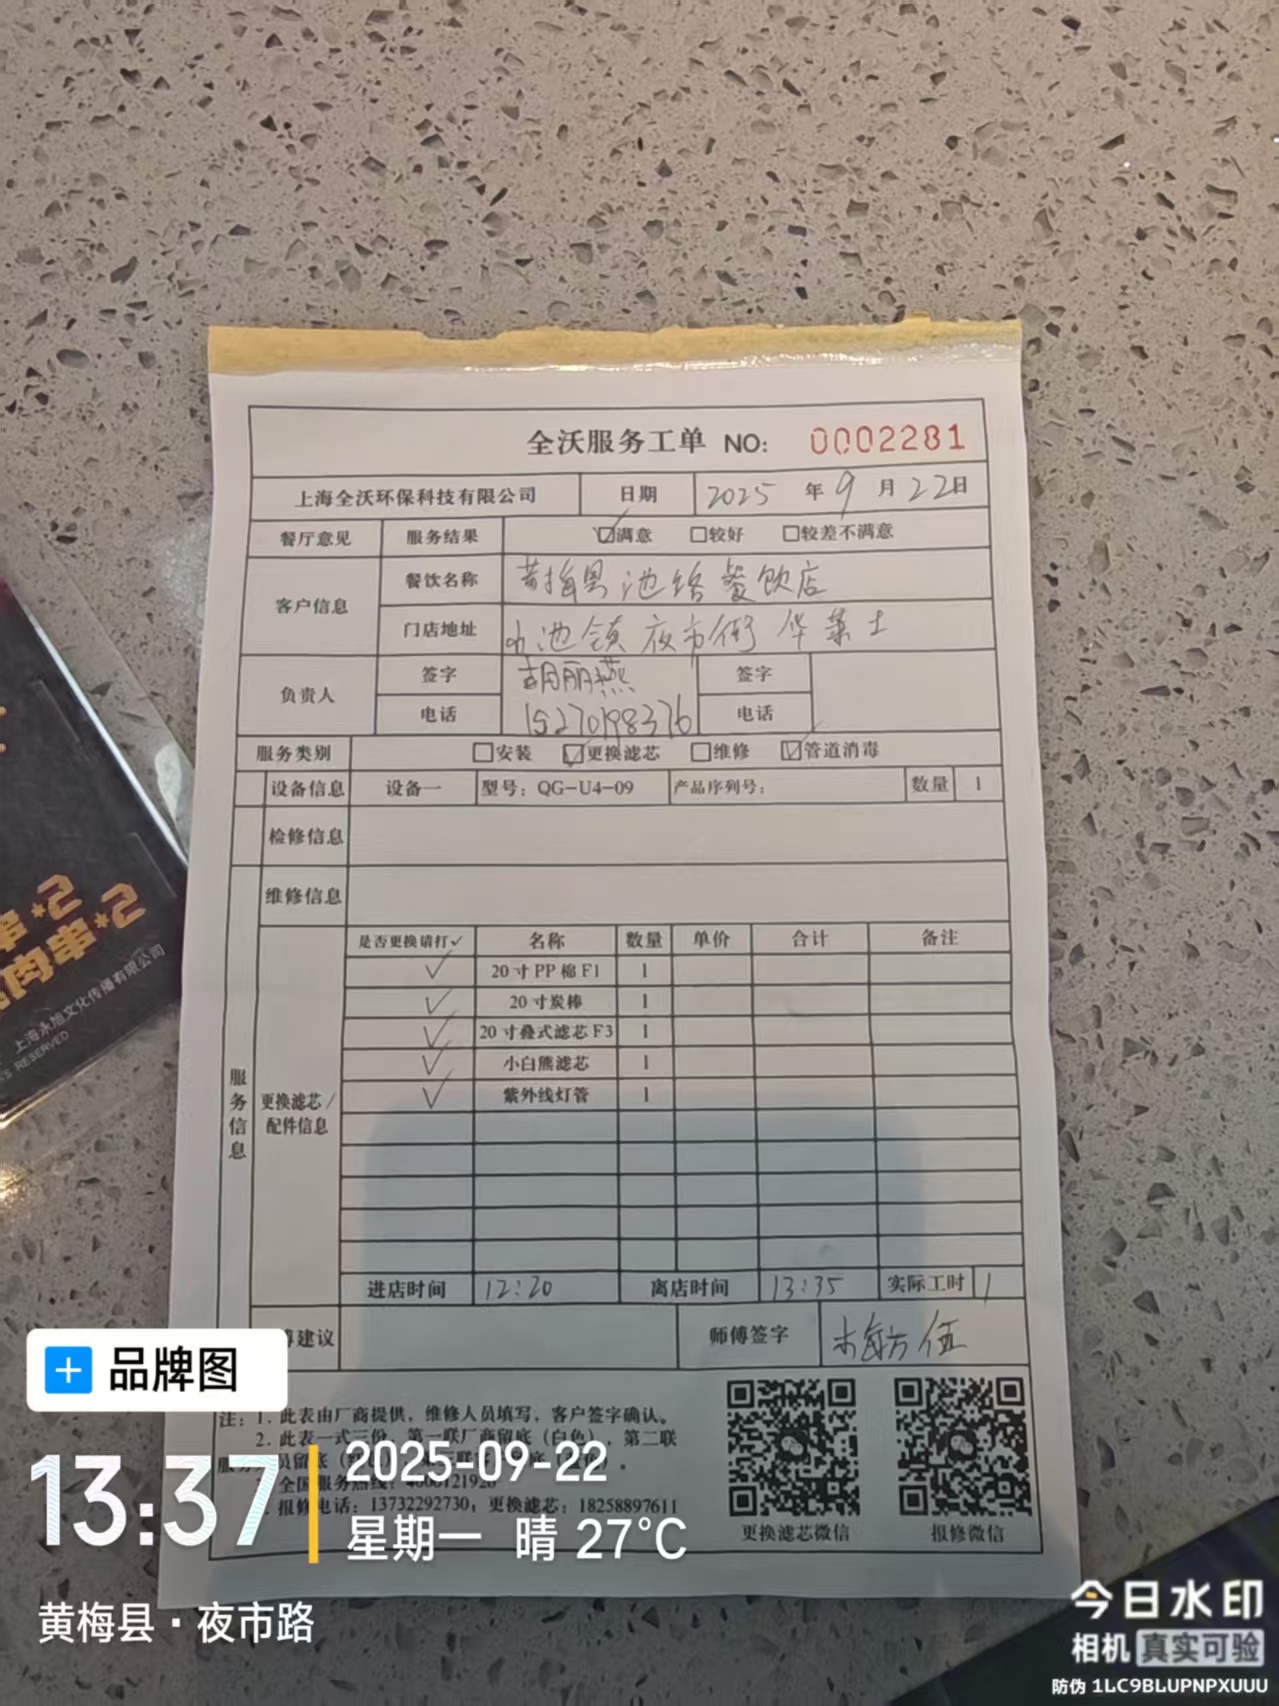 全沃服务工单 NO: 0002281
上海全沃环保科技有限公司 日期 2025 年 9 月 22日
餐厅意见 服务结果 ☑满意 □较好 □较差不满意
客户信息 餐饮名称 黄梅县池络餐饮店
门店地址 小池镇夜市街华莱士
负责人 签字 胡丽燕 签字
电话 15270198376 电话
服务类别 □安装 ☑更换滤芯 □维修 ☑管道消毒
设备信息 设备一 型号：QG-U4-09 产品序列号： 数量 1
检修信息
维修信息
服务信息
更换滤芯/配件信息
是否更换请打✓ 名称 数量 单价 合计 备注
✓ 20寸PP棉F1 1
✓ 20寸炭棒 1
✓ 20寸叠式滤芯F3 1
✓ 小白熊滤芯 1
✓ 紫外线灯管 1
进店时间 12:20 离店时间 13:35 实际工时 1
建议 师傅签字
注：1. 此表由厂商提供，维修人员填写，客户签字确认。
2. 此表一式三份，第一联厂商留底（白色），第二联
员留底
全国服务热线：
报修电话：13732292730；更换滤芯：18258897611
更换滤芯微信 报修微信
串*2
肉串*2
上海永旭文化传播有限公司
RESERVED
品牌图
13:37
2025-09-22
星期一 晴 27℃
黄梅县·夜市路
今日水印
相机 真实可验
防伪 1LC9BLUPNPXUUU